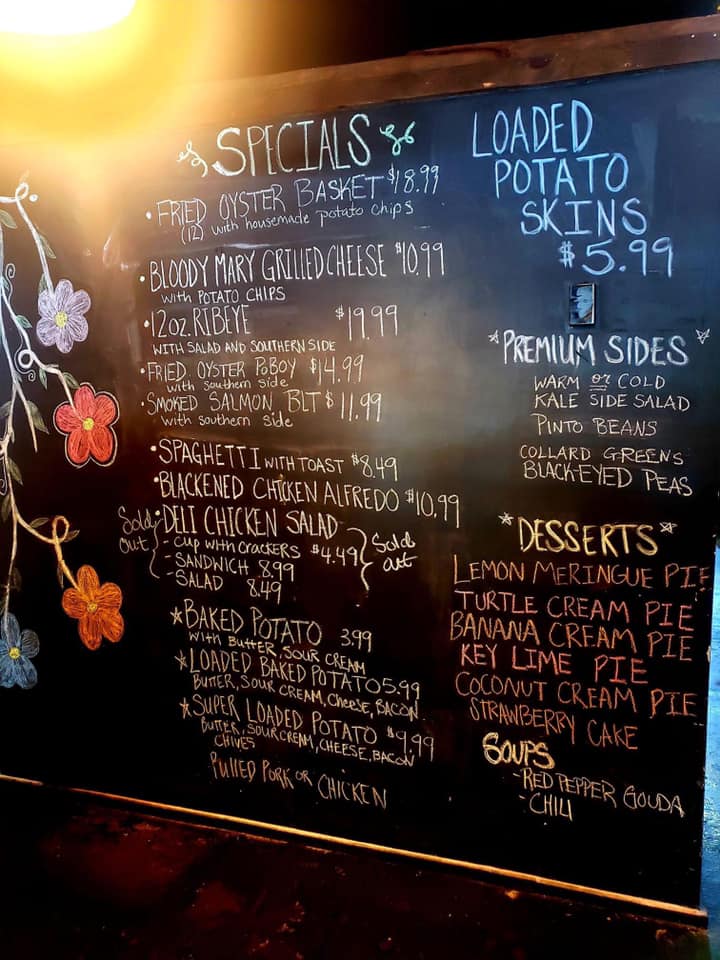 SPECIALS
• FRIED OYSTER BASKET $18.99
(12) with housemade potato chips
• BLOODY MARY GRILLED CHEESE $10.99
with POTATO CHIPS
• 12oz. RIBEYE $19.99
WITH SALAD AND SOUTHERN SIDE
• FRIED OYSTER POBOY $14.99
with southern side
• SMOKED SALMON BLT $11.99
with southern side
• SPAGHETTI WITH TOAST $8.49
• BLACKENED CHICKEN ALFREDO $10.99
Sold Out • DELI CHICKEN SALAD
- CUP WITH CRACKERS $4.49 Sold out
- SANDWICH 8.99
- SALAD 8.49
* BAKED POTATO 3.99
WITH BUTTER, SOUR CREAM
* LOADED BAKED POTATO 5.99
BUTTER, SOUR CREAM, CHEESE, BACON
* SUPER LOADED POTATO $9.99
BUTTER, SOUR CREAM, CHEESE, BACON
CHIVES
PULLED PORK OR CHICKEN
LOADED
POTATO
SKINS
$5.99
* PREMIUM SIDES *
WARM or COLD
KALE SIDE SALAD
PINTO BEANS
COLLARD GREENS
BLACK-EYED PEAS
* DESSERTS *
LEMON MERINGUE PIE
TURTLE CREAM PIE
BANANA CREAM PIE
KEY LIME PIE
COCONUT CREAM PIE
STRAWBERRY CAKE
SOUPS
- RED PEPPER GOUDA
- CHILI